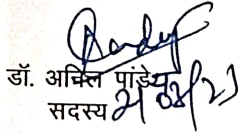 डॉ. अचिल पांडेय
सदस्य 21/03/23